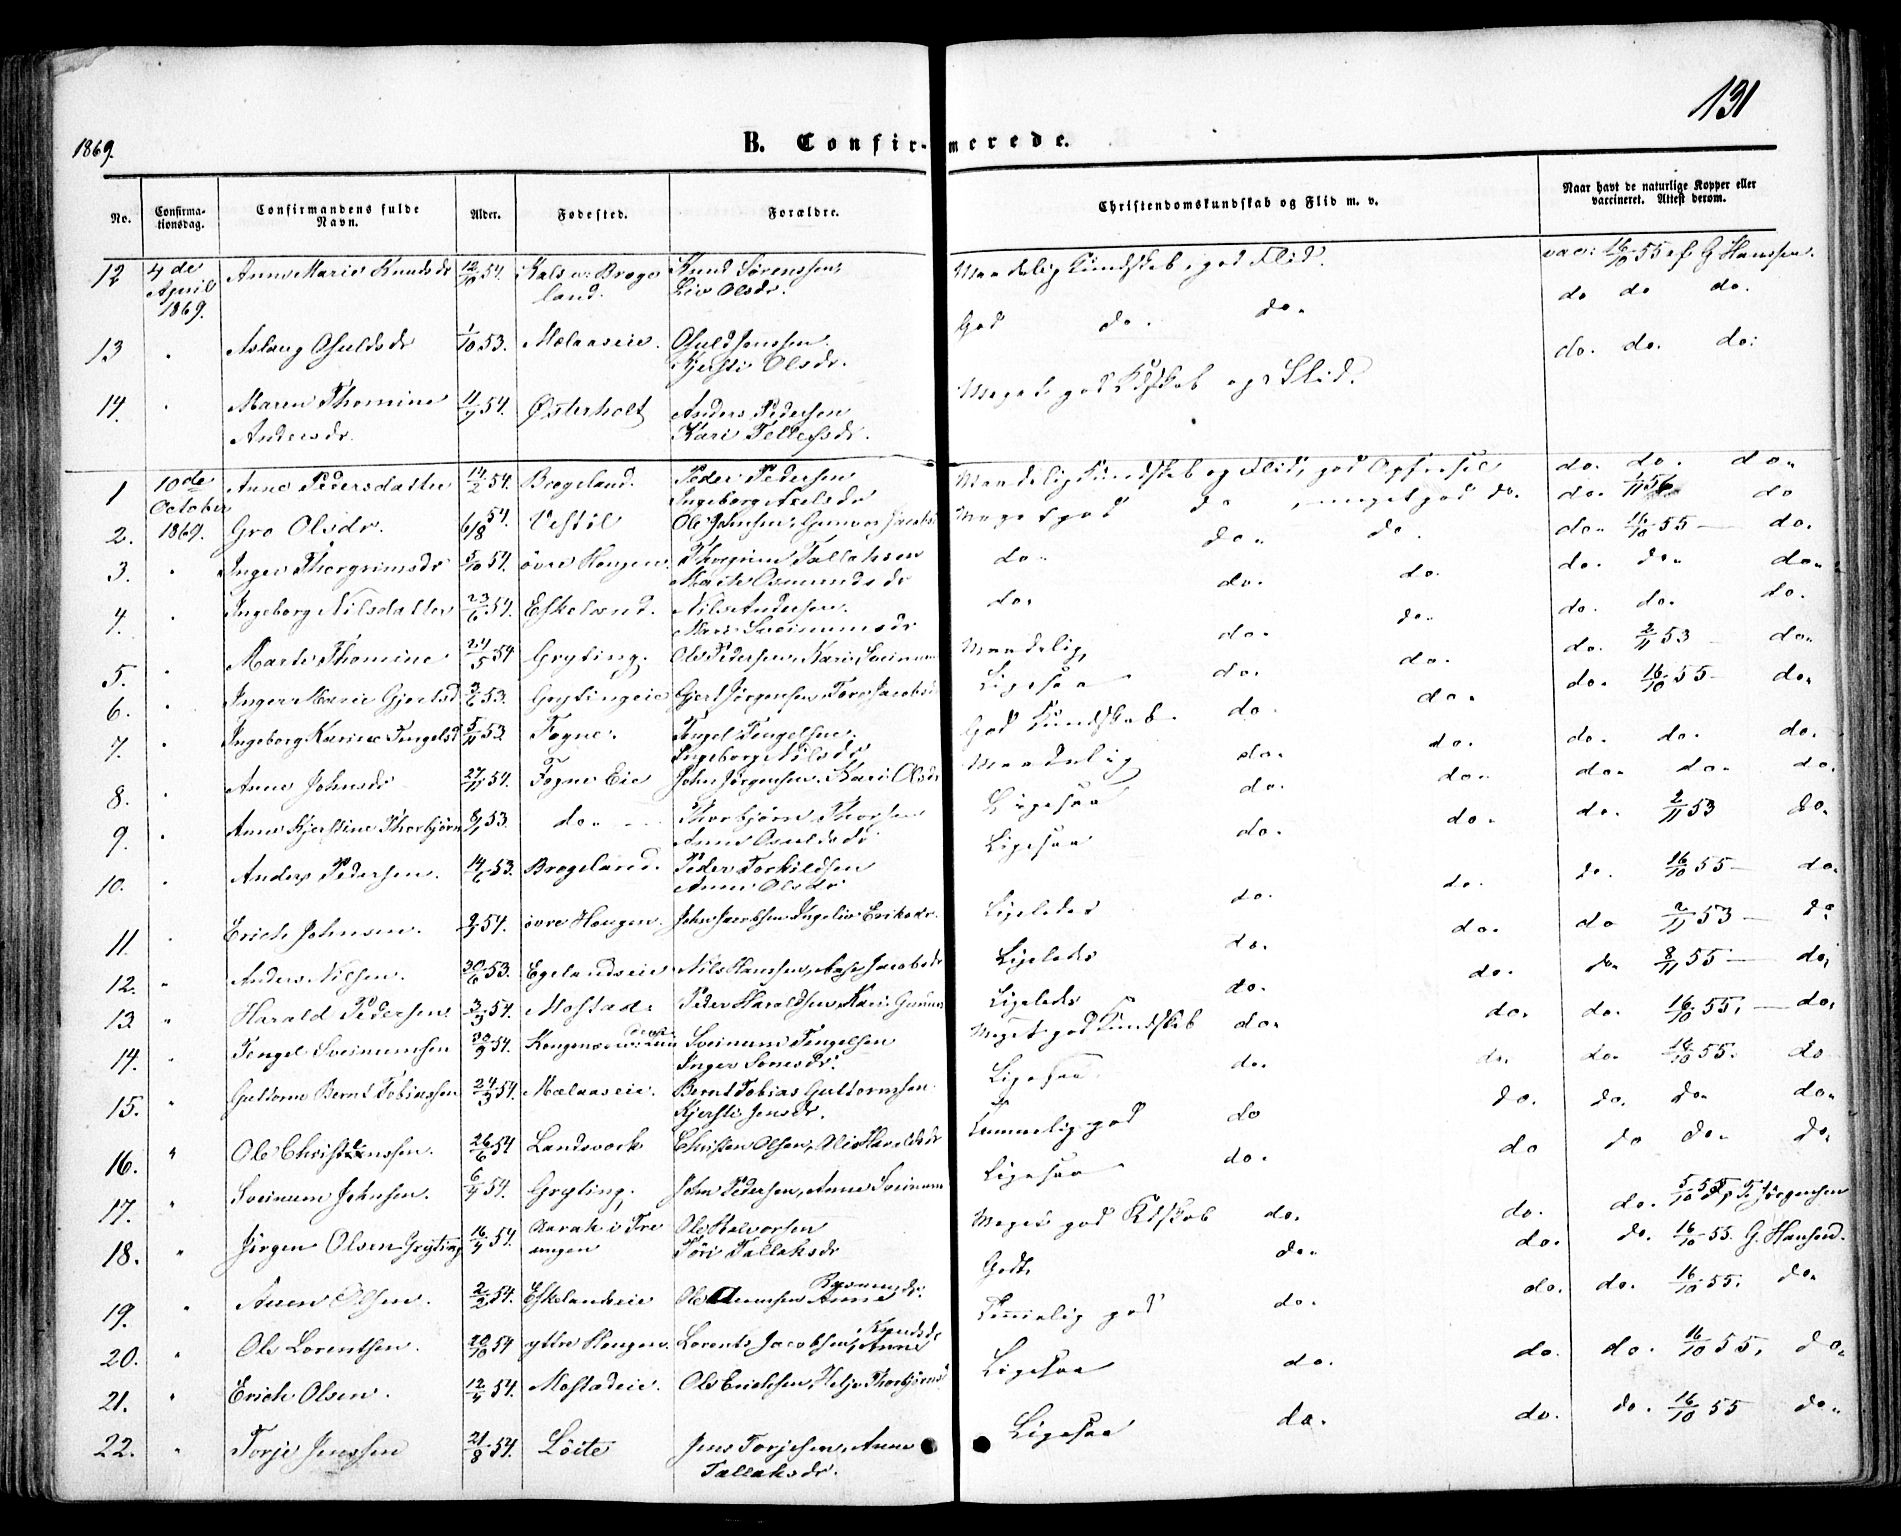 131
1869.
B. Confirmerede.
No. Confirmationsdag. Confirmandens fulde Navn. Alder. Fødested. Forældre. Christendomskundskab og Flid m. v. Naar havt de naturlige Kopper eller vaccineret. Attest derom.
12 4de April 1869. Anne Marie Knudsdr 12/10 54. Brogeland. Knud Sørenssen, Liv Olsdr. Maadelig Kundskab, god Flid. vac: 16/10 55 af G Hanssen.
13 Aslaug Osuldsdr 1/10 53. Mælaaseie. Osuld Jenssen. Kjersti Olsdr. God do. do. do do do.
14. Maren Thomine Andersdr. 54. Østerholt Anders Pedersen Kari Tellefsdr. Meget god Kdskab og Flid. do. do. do:
1 10de October 1869. Anne Pedersdatter 14/2 54. Brogeland. Peder Pedersen Ingeborg Axelsdr Maadelig Kundskab og Flid, god Opførsel do. do. do.
2. Gro Olsdr. 6/8 54. Vestøl Ole Johnsen, Gunvor Meget god do, meget god do. do. 56 do
3. Inger Thorgrimsdr 5/10 54. øvre Hougen. Thorgrim Tallaksen Marte Osmundsdr do. do. do. do. 16/10 55 — do.
4. Ingeborg Nilsdatter 23/6 54. Eskeland. Nils Andersen. Mari Sveinumsdr do. do. do. do. do. do.
5. Marte Thomine 24/5 54 Gryting. Ole Pedersen, Kari Sveinum Maadelig, do. do. do. do. do.
6. Inger Marie Gjertsd 53. Grytingeie Gjert Jørgensen, Tore Jacobsd Ligesaa do. do. do. 2/11 53 — do.
7. Ingeborg Karine Tengelsd 5/11 53 Fogne. Tengel Tengelsen. Ingeborg Nilsdr God Kundskab. do. do. do. 16/10 55 — do.
8. Anne Johnsdr 27/11 54. Fogne Eie John Jørgensen. Kari Olsdr Maadelig do. do. do. do. do.
9. Anne Kjerstine Thorbjørn 53. do. — Thorbjørn Thorsen Anne Osuldsdr Ligesaa do. do. do. do. do.
10. Anders Pedersen. 14/6 53. Brogeland. Peder Torkildsen Anne Olsdr Ligesaa do. do. do. 2/11 53 do.
11. Erich Johnsen. 54. øvre Hougen. John Jacobsen Ingeliv Eriksdr. Ligeledes do. do. do. 16/10 55 — do.
12. Anders Nilsen. 30/6 53. Egelandseie Nils Hanssen, Aase Jacobsdr Ligeledes do. do. do 2/11 53 — do
13 Harald Pedersen 54. Mostad. Peder Haraldsen, Kari Gunnar Ligeledes do. do. do. 8/11 55 — do.
14. Tengel Sveinumsen 30/9 54. Sveinum Tengelsen Inger Tomsdr. Meget god Kundskab do. do. do. 16/10 55. — do.
15. Guttorm Bernt Tobiassen 24/3 54. Mælaaseie. Bernt Tobias Guttormsen. Kjersti Jensdr. Ligesaa. do. do. do. 16/10 55. do
16. Ole Christenssen. 26/6 54 Landsverk Christen Olsen, Haraldsdr Temmelig god do do. do. do. do.
17. Sveinum Johnsen. 54. Gryting. John Pedersen, Anne Sveinum Ligesaa do. do do do. do.
18. Jørgen Olsen Gryting 16/4 54. Aarak i Tre ungen Ole Halvorsen Tøri Tallaksdr Meget god Kdskab do. do. do. 5/10 55 af T. Jørgensen
19. Anen Olsen. 2/2 54. Eskelandseie Ole Anensen Anne Rasmusdr. Godt. do. do. do. 16/10 55. G. Hansen.
20. Ole Lorentsen. 20/10 54 yttre Hougen. Lorents Jacobsen, Anne Knudsdr Temmelig god do. do. do. 16/10 55. do.
21. Erich Olsen. 12/4 54. Mostadeie. Ole Erichsen, Helje Thorbjørnsd Ligesaa do. do. do. 16/10 55. do.
22. Torje Jenssen 21/8 54. Løite Jens Torjesen, Anne Tallaksdr. Ligesaa do. do. do. 16/10 55 do.